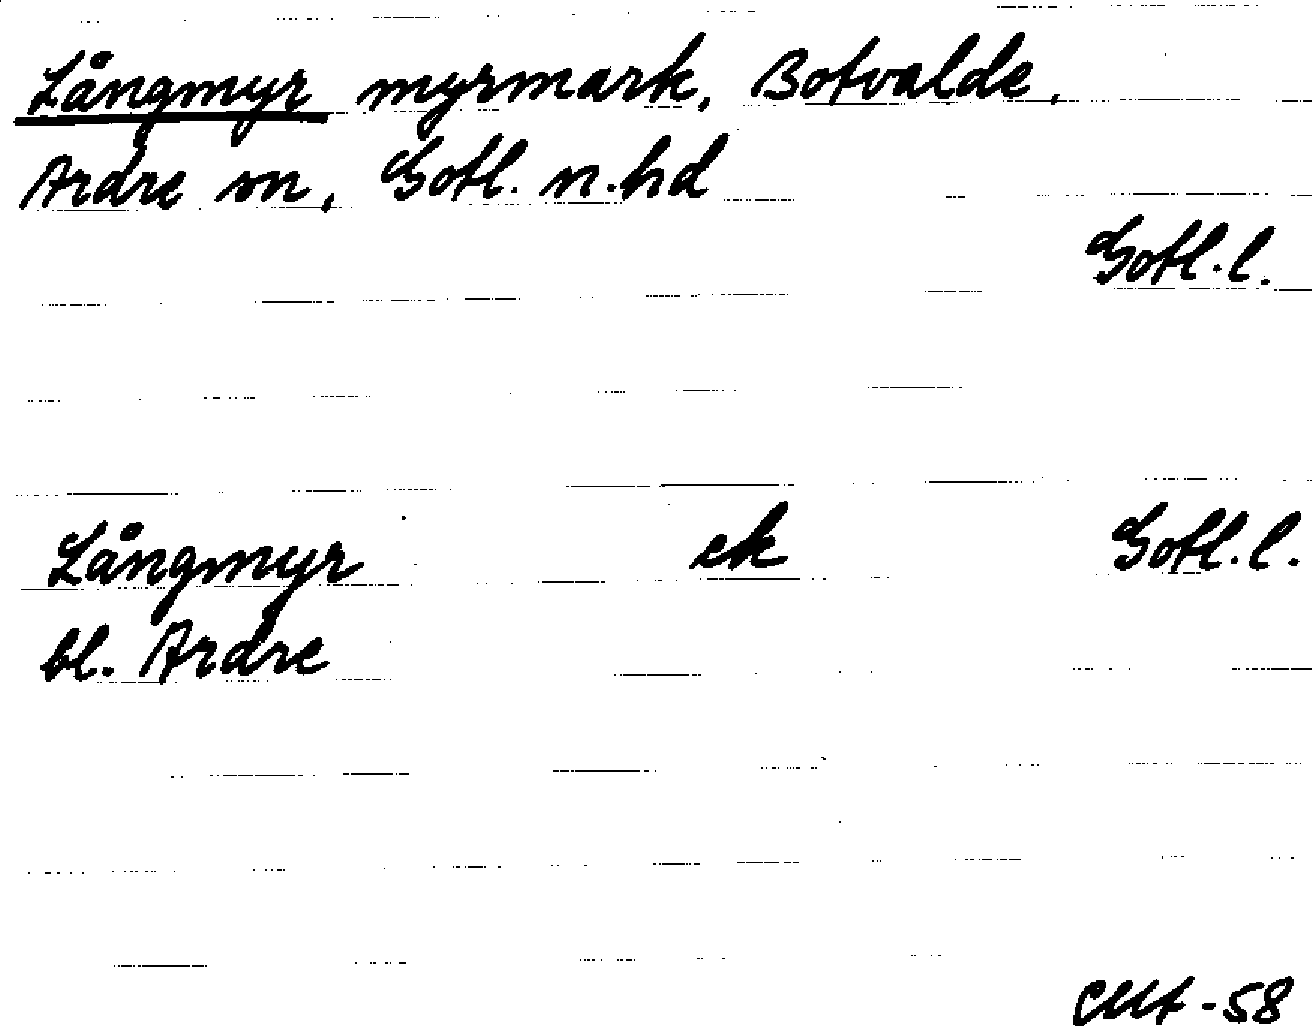 Långmyr myrmark, Botvalde,
Ardre sn, Gotl. n. hd
Gotl. l.
Långmyr ek Gotl. l.
bl. Ardre
-58